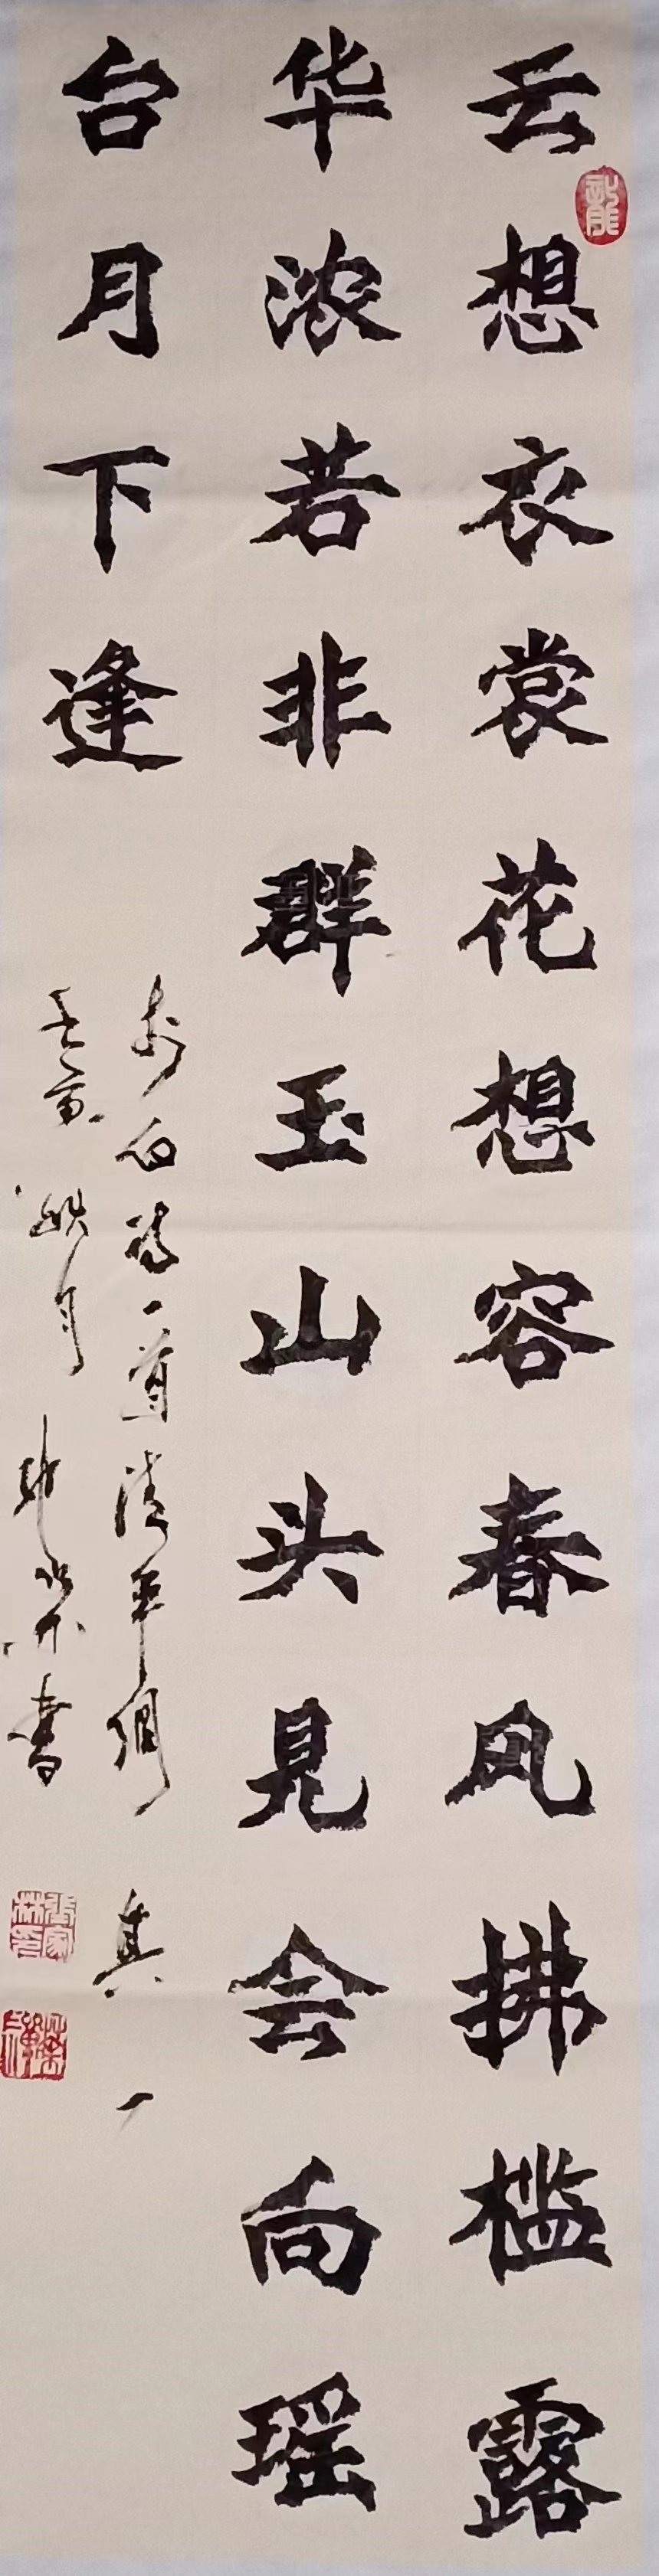 云想衣裳花想容春风拂槛露
华浓若非群玉山头見会向瑶
台月下逢
李白诗一首清平调 其一
書
龍